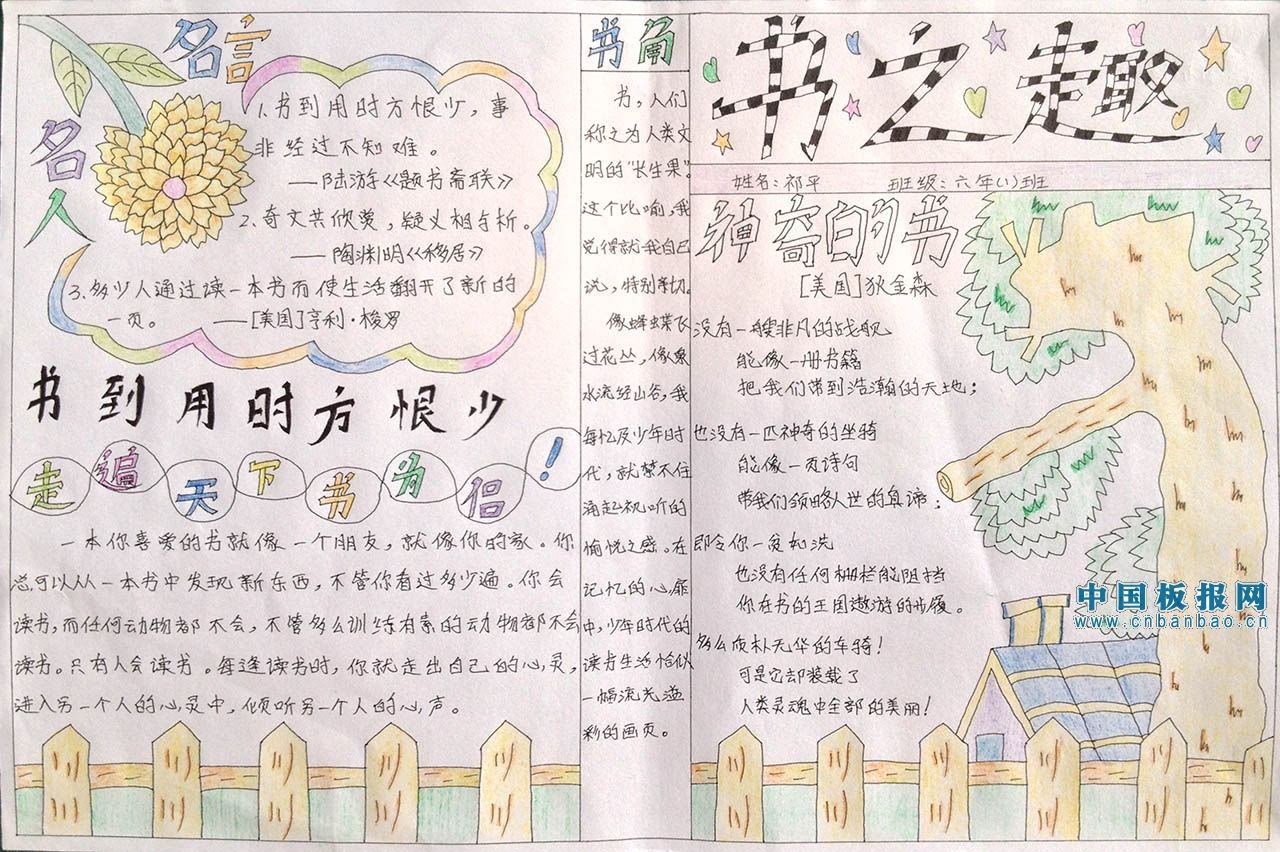 名人名言
1.书到用时方恨少，事
非经过不知难。
——陆游《题书斋联》
2、奇文共欣赏，疑义相与析。
——陶渊明《移居》
3、多少人通过读一本书而使生活翻开了新的
一页。——[美国]亨利·梭罗
书到用时方恨少
走遍天下书为侣！
一本你喜爱的书就像一个朋友，就像你的家。你
总可以从一本书中发现新东西，不管你看过多少遍。你会
读书，而任何动物都不会，不管多么训练有素的动物都不会
读书。只有人会读书。每逢读书时，你就走出自己的心灵，
进入另一个人的心灵中，倾听另一个人的心声。
书角
书，人们
称之为人类文
明的“长生果”。
这个比喻，我
觉得就我自己
说，特别亲切。
像蜂蝶飞
过花丛，像泉
水流经山谷，我
每忆及少年时
代，就禁不住
涌起视听的
愉悦之感。在
记忆的心扉
中，少年时代的
读书生活恰似
一幅流光溢
彩的画页。
书之趣
姓名：祁平 班级：六年(1)班
神奇的书
[美国]狄金森
没有一艘非凡的战舰
能像一册书籍
把我们带到浩瀚的天地；
也没有一匹神奇的坐骑
能像一页诗句
带我们领略人世的真谛．
即令你一贫如洗
也没有任何栅栏能阻挡
你在书的王国遨游的步履。
多么质朴无华的车骑！
可是它却装载了
人类灵魂中全部的美丽！
中国板报网
www.cnbanbao.cn